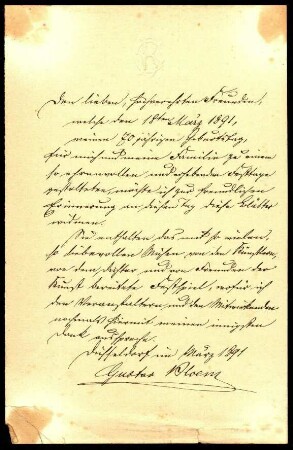 Den lieben, hochverehrten Freunden,
welche den 18ten März 1891,
meinen 70 jährigen Geburtstag,
für mich und meine Familie zu einem
so ehrenvollen und erhebenden Festtage
gestalteten, möchte ich zur freundlichen
Erinnerung an diesen Tag diese Blätter
widmen.
Sie enthalten das mit so vielem,
so liebevollen von den Künstlern,
von dem Dichter und von Freunden der
Kunst bereitete Festspiel, wofür ich
den Veranstaltern und den Mitwirkenden
nochmals hiermit meinen innigsten
Dank ausspreche.
Düsseldorf im März 1891
Gustav Bloem